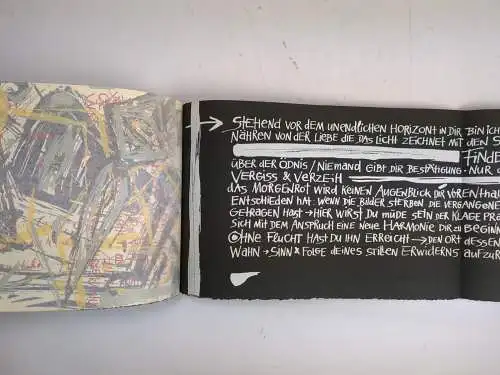 → STEHEND VOR DEM UNENDLICHEN HORIZONT IN DIR BIN ICH
NÄHREN VON DER LIEBE DIE DAS LICHT ZEICHNET MIT DEN S
FINDE
ÜBER DER ÖDNIS / NIEMAND GIBT DIR BESTÄTIGUNG. NUR
VERGISS & VERZEIH
DAS MORGENROT WIRD KEINEN AUGENBLICK DIR
ENTSCHIEDEN HAT. WENN DIE BILDER STERBEN DIE VERGANGENE
GETRAGEN HAST → HIER WIRST DU MÜDE SEIN DER KLAGE
SICH MIT DEM ANSPRUCH EINE NEUE HARMONIE DIR ZU BEGINN
OHNE FLUCHT HAST DU IHN ERREICHT → DEN ORT DESSEN
WAHN → SINN & FOLGE DEINES STILLEN ERWIDERNS AUFZU